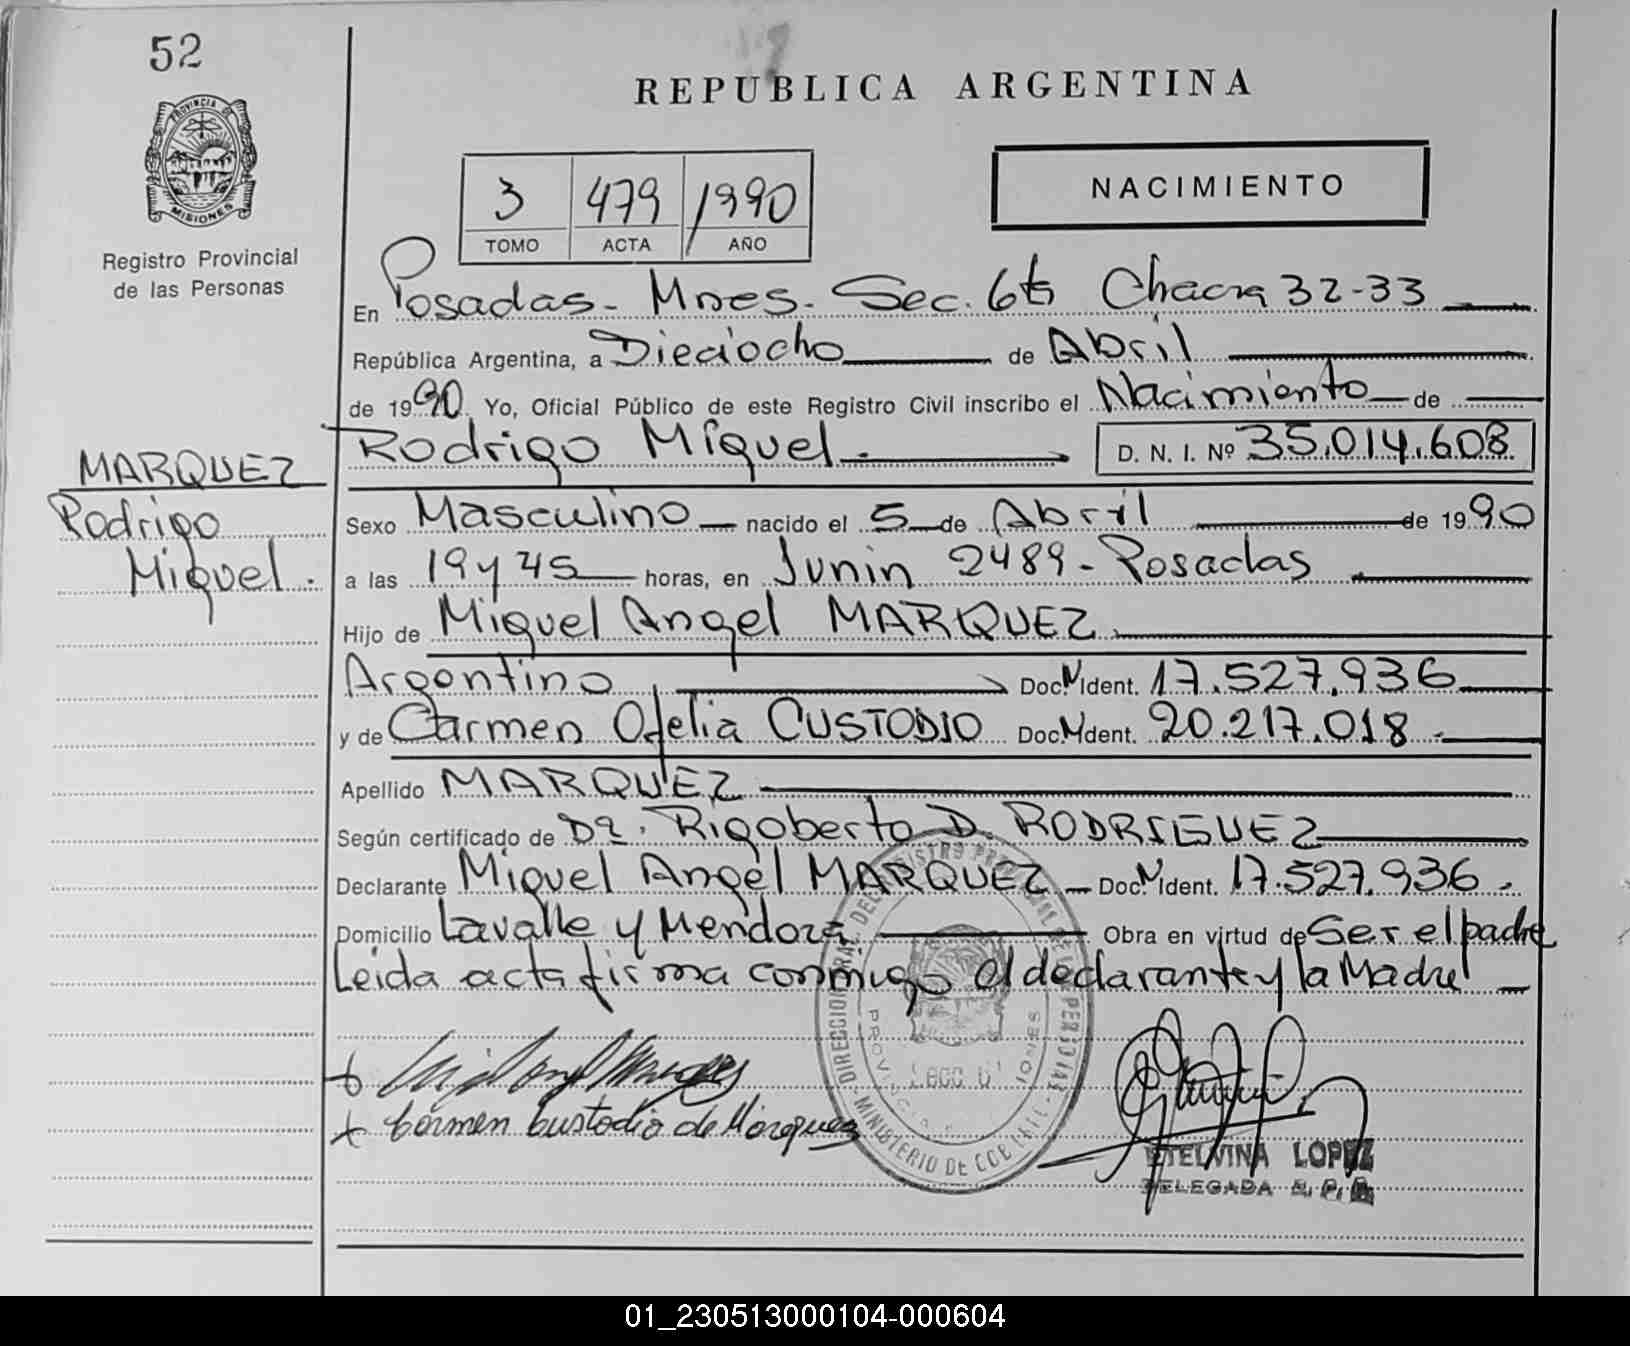 52
REPUBLICA ARGENTINA
PROVINCIA DE
MISIONES
Registro Provincial
de las Personas
3 479 1990
TOMO ACTA AÑO
NACIMIENTO
En Posadas - Mnes. Sec. 6ta Chacra 32-33
República Argentina, a Dieciocho de Abril
de 1990. Yo, Oficial Público de este Registro Civil inscribo el Nacimiento de
Rodrigo Miguel. D. N. I. Nº 35.014.608
MARQUEZ
Rodrigo
Miguel.
Sexo Masculino nacido el 5 de Abril de 1990
a las 19 y 45 horas, en Junin 2489 - Posadas
Hijo de Miguel Angel MARQUEZ
Argentino Doc. N Ident. 17.527.936
y de Carmen Ofelia CUSTODIO Doc. N Ident. 20.217.018
Apellido MARQUEZ
Según certificado de Dr. Rigoberto D. RODRIGUEZ
Declarante Miguel Angel MARQUEZ Doc. N Ident. 17.527.936
Domicilio Lavalle y Mendoza Obra en virtud de Ser el padre
Leida acta firma conmigo el declarante y la Madre
+ Carmen Custodio de Marquez
ETELVINA LOPEZ
DELEGADA R. P. P.
01_230513000104-000604